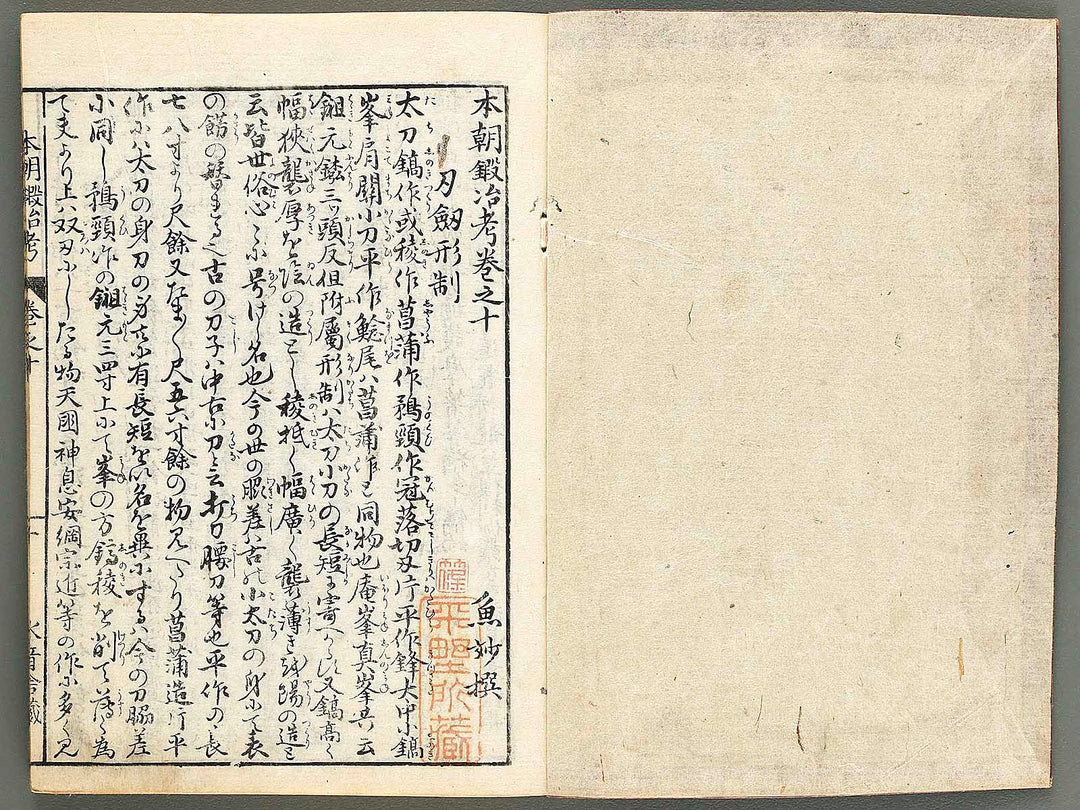 本朝鍛冶考巻之十
魚妙撰
刀劔形制
太刀鎬作或稜作菖蒲作鵜頸作冠落切刃片平作鋒大中小鎬
峯肩開小刀平作鯰尾ハ菖蒲作と同物也庵峯真峯共云
鉏元 三ツ頭反但附屬形制ハ太刀小刀の長短に寄へからす又鎬高く
幅狹 厚を陰の造とし稜抵く幅廣く 薄きを陽の造と
云皆世俗心々に号けし名也今の世の脇差ハ古の小太刀の身にて表
の 也古の刀子ハ中古小刀と云打刀腰刀等也平作の長
七八寸より尺餘又なかく尺五六寸餘の物見へたり菖蒲造片平
作にハ太刀の身刀の身共に有長短を以名を異にするハ今の刀脇差
に同し鵜頸作の鉏元三四寸上にて峯の方鎬稜を削て薄く為
て夫より上ハ双刃にしたる物天國神息安綱宗近等の作に多く見
本朝鍛冶考 巻之十